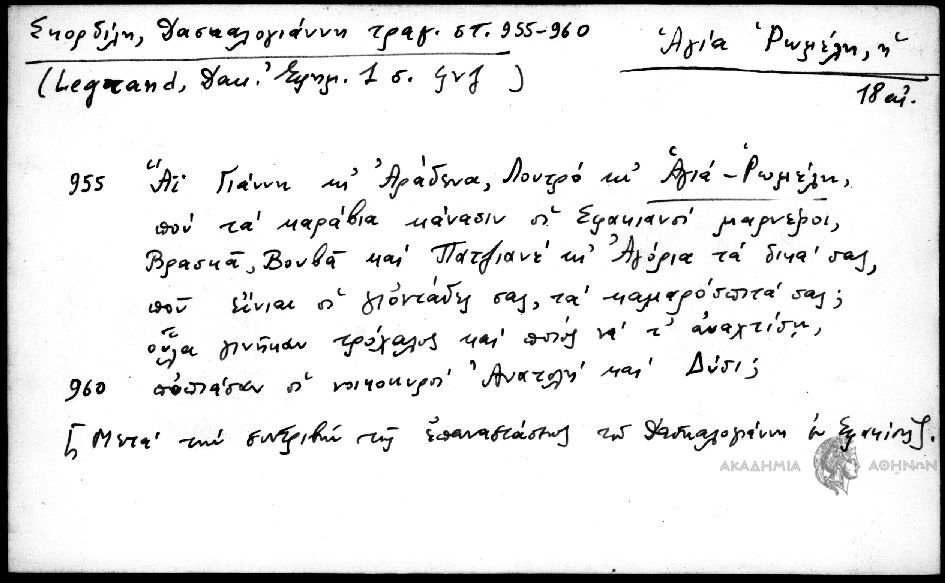 Σκορδίλη, Δασκαλογιάννη τραγ. στ. 955-960
Ἁγία Ῥωμέλη, ἡ
(Legrand, Δακ. Ἐφημ. 1 σ. ϟνζ)
18 αἰ.
955 Ἅϊ Γιάννη κι' Ἀράδενα, Λουτρό κι' Ἁγιά-Ρωμέλη,
πού τά καράβια κάνασιν οἱ Σφακιανοί μαρνέροι,
Βρασκᾶ, Βουβᾶ καί Πατζιανέ κι' Ἀγόρια τά δικά σας,
ποῦ εἶνιαι οἱ γιὀντάδες σας, τά καμαρόσπιτά σας;
οὗλα γινῆκαν τρόχαλος καί ποιός νά τ' ἀναχτίση,
960 πὀπιάσαν οἱ νοικοκυροί Ἀνατολή καί Δύσι;
[Μετά τήν συντριβήν τῆς ἐπαναστάσεως τοῦ Δασκαλογιάννη ἐν Σφακίοις].
ΑΚΑΔΗΜΙΑ ΑΘΗΝΩΝ